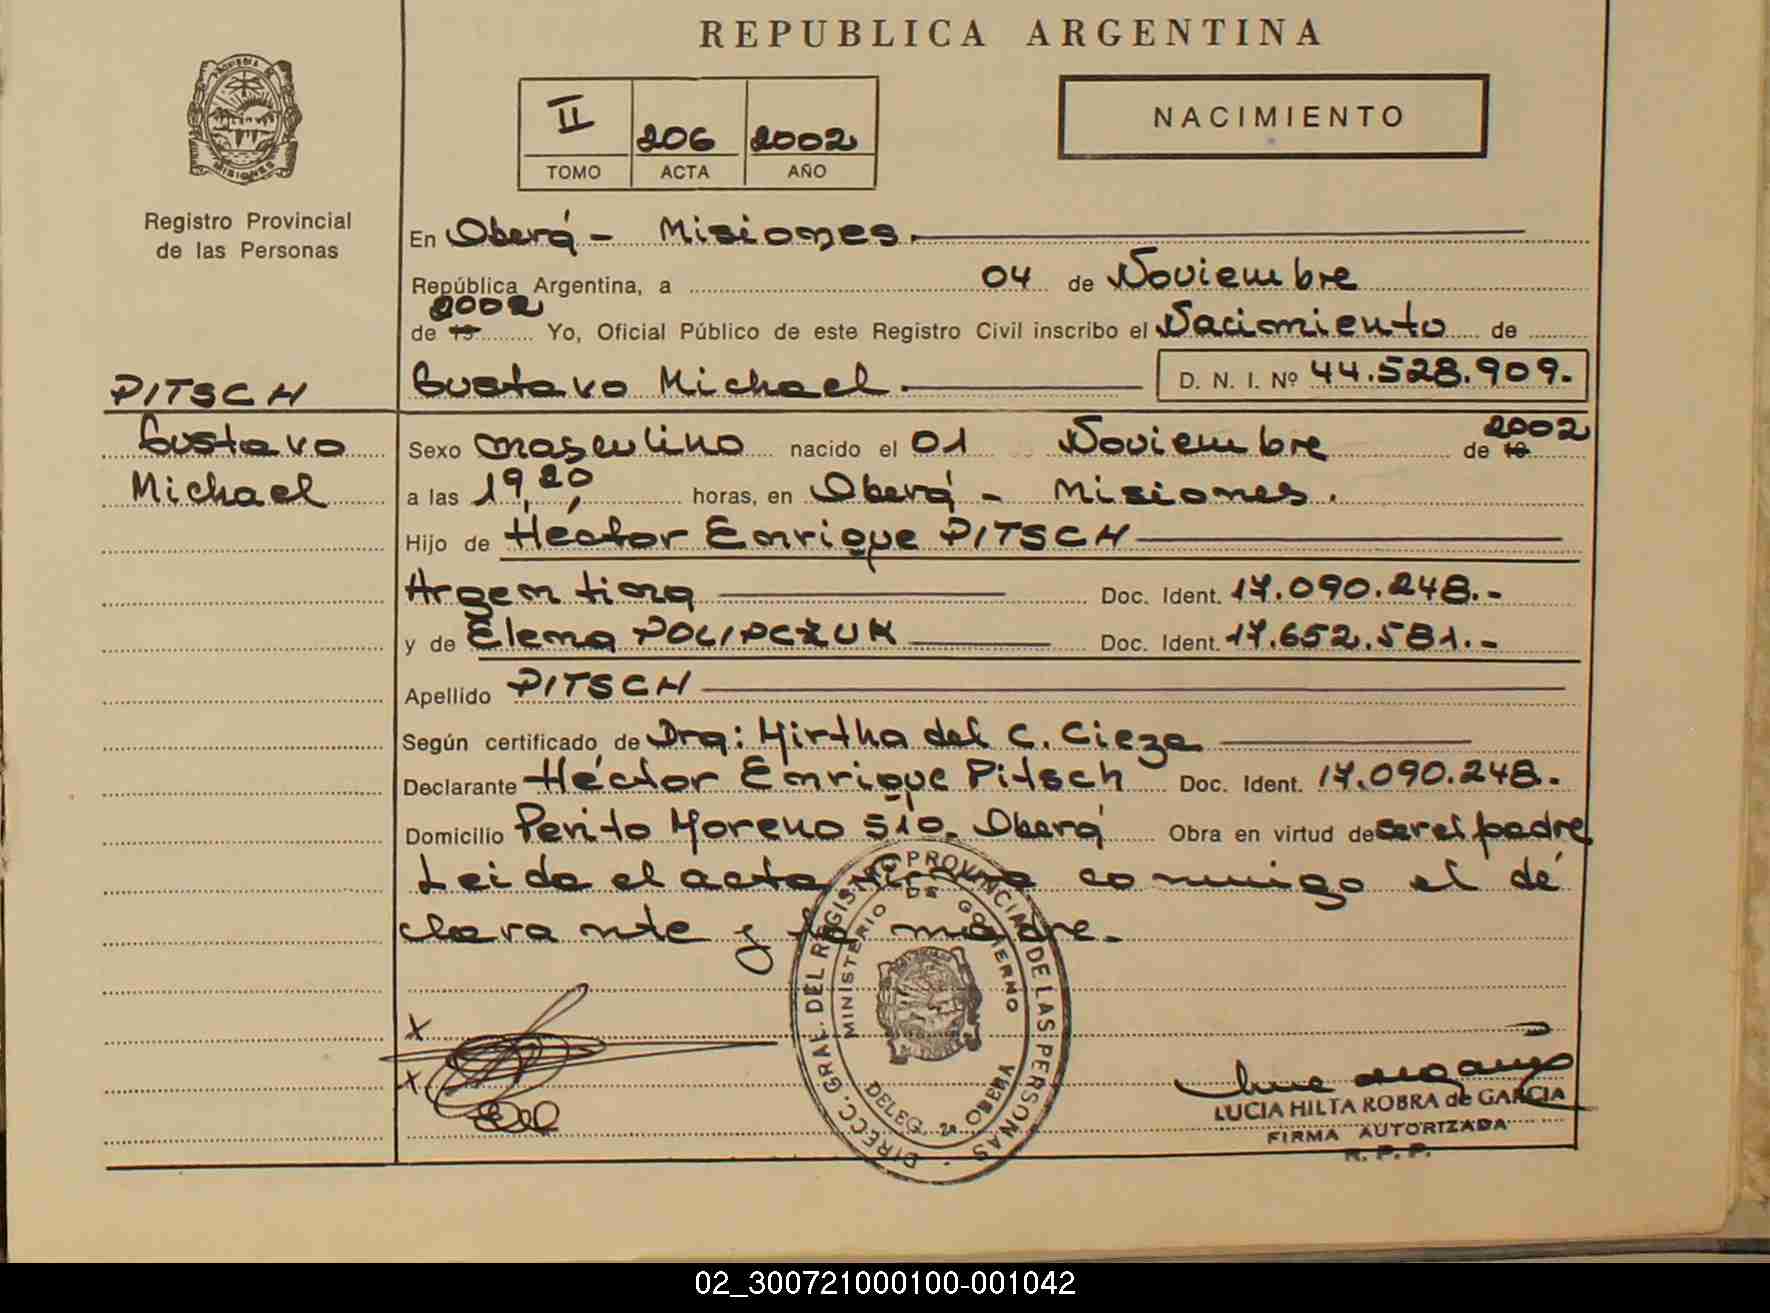 REPUBLICA ARGENTINA
PROVINCIA DE
MISIONES
Registro Provincial
de las Personas
II 206 2002
TOMO ACTA AÑO
NACIMIENTO
En Oberá - Misiones.
República Argentina, a 04 de Noviembre
2002
de 19 Yo, Oficial Público de este Registro Civil inscribo el Nacimiento de
Gustavo Michael. D. N. I. Nº 44.528.909.-
PITSCH
Gustavo
Michael
Sexo masculino nacido el 01 Noviembre de 19 2002
a las 19,20 horas, en Oberá - Misiones.
Hijo de Héctor Enrique PITSCH
Argentina Doc. Ident. 17.090.248.-
y de Elena POLIPCZUK Doc. Ident. 17.652.581.-
Apellido PITSCH
Según certificado de Dra: Mirtha del C. Cieza
Declarante Héctor Enrique Pitsch Doc. Ident. 17.090.248.-
Domicilio Perito Moreno 510. Oberá Obra en virtud de ser el padre
Leida el acta firma conmigo el de
clarante y la madre.
DIRECC. GRAL. DEL REGISTRO PROVINCIAL DE LAS PERSONAS
MINISTERIO DE GOBIERNO
OBERA
LUCIA HILTA ROBRA de GARCIA
FIRMA AUTORIZADA
R. P. P.
02_300721000100-001042